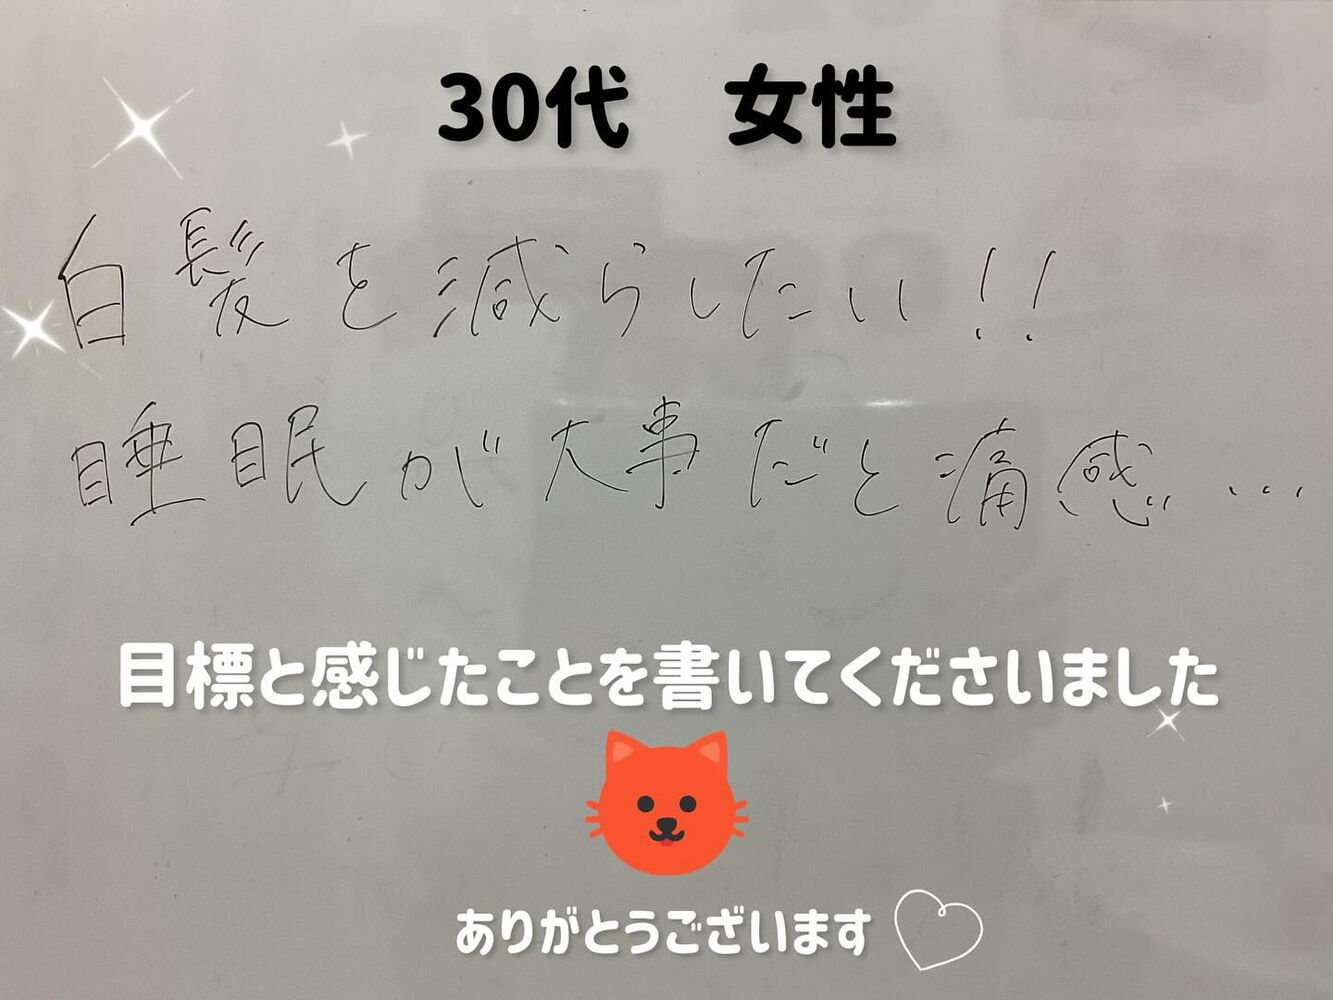 30代　女性
白髪を減らしたい!!
睡眠が大事だと痛感…
目標と感じたことを書いてくださいました
ありがとうございます